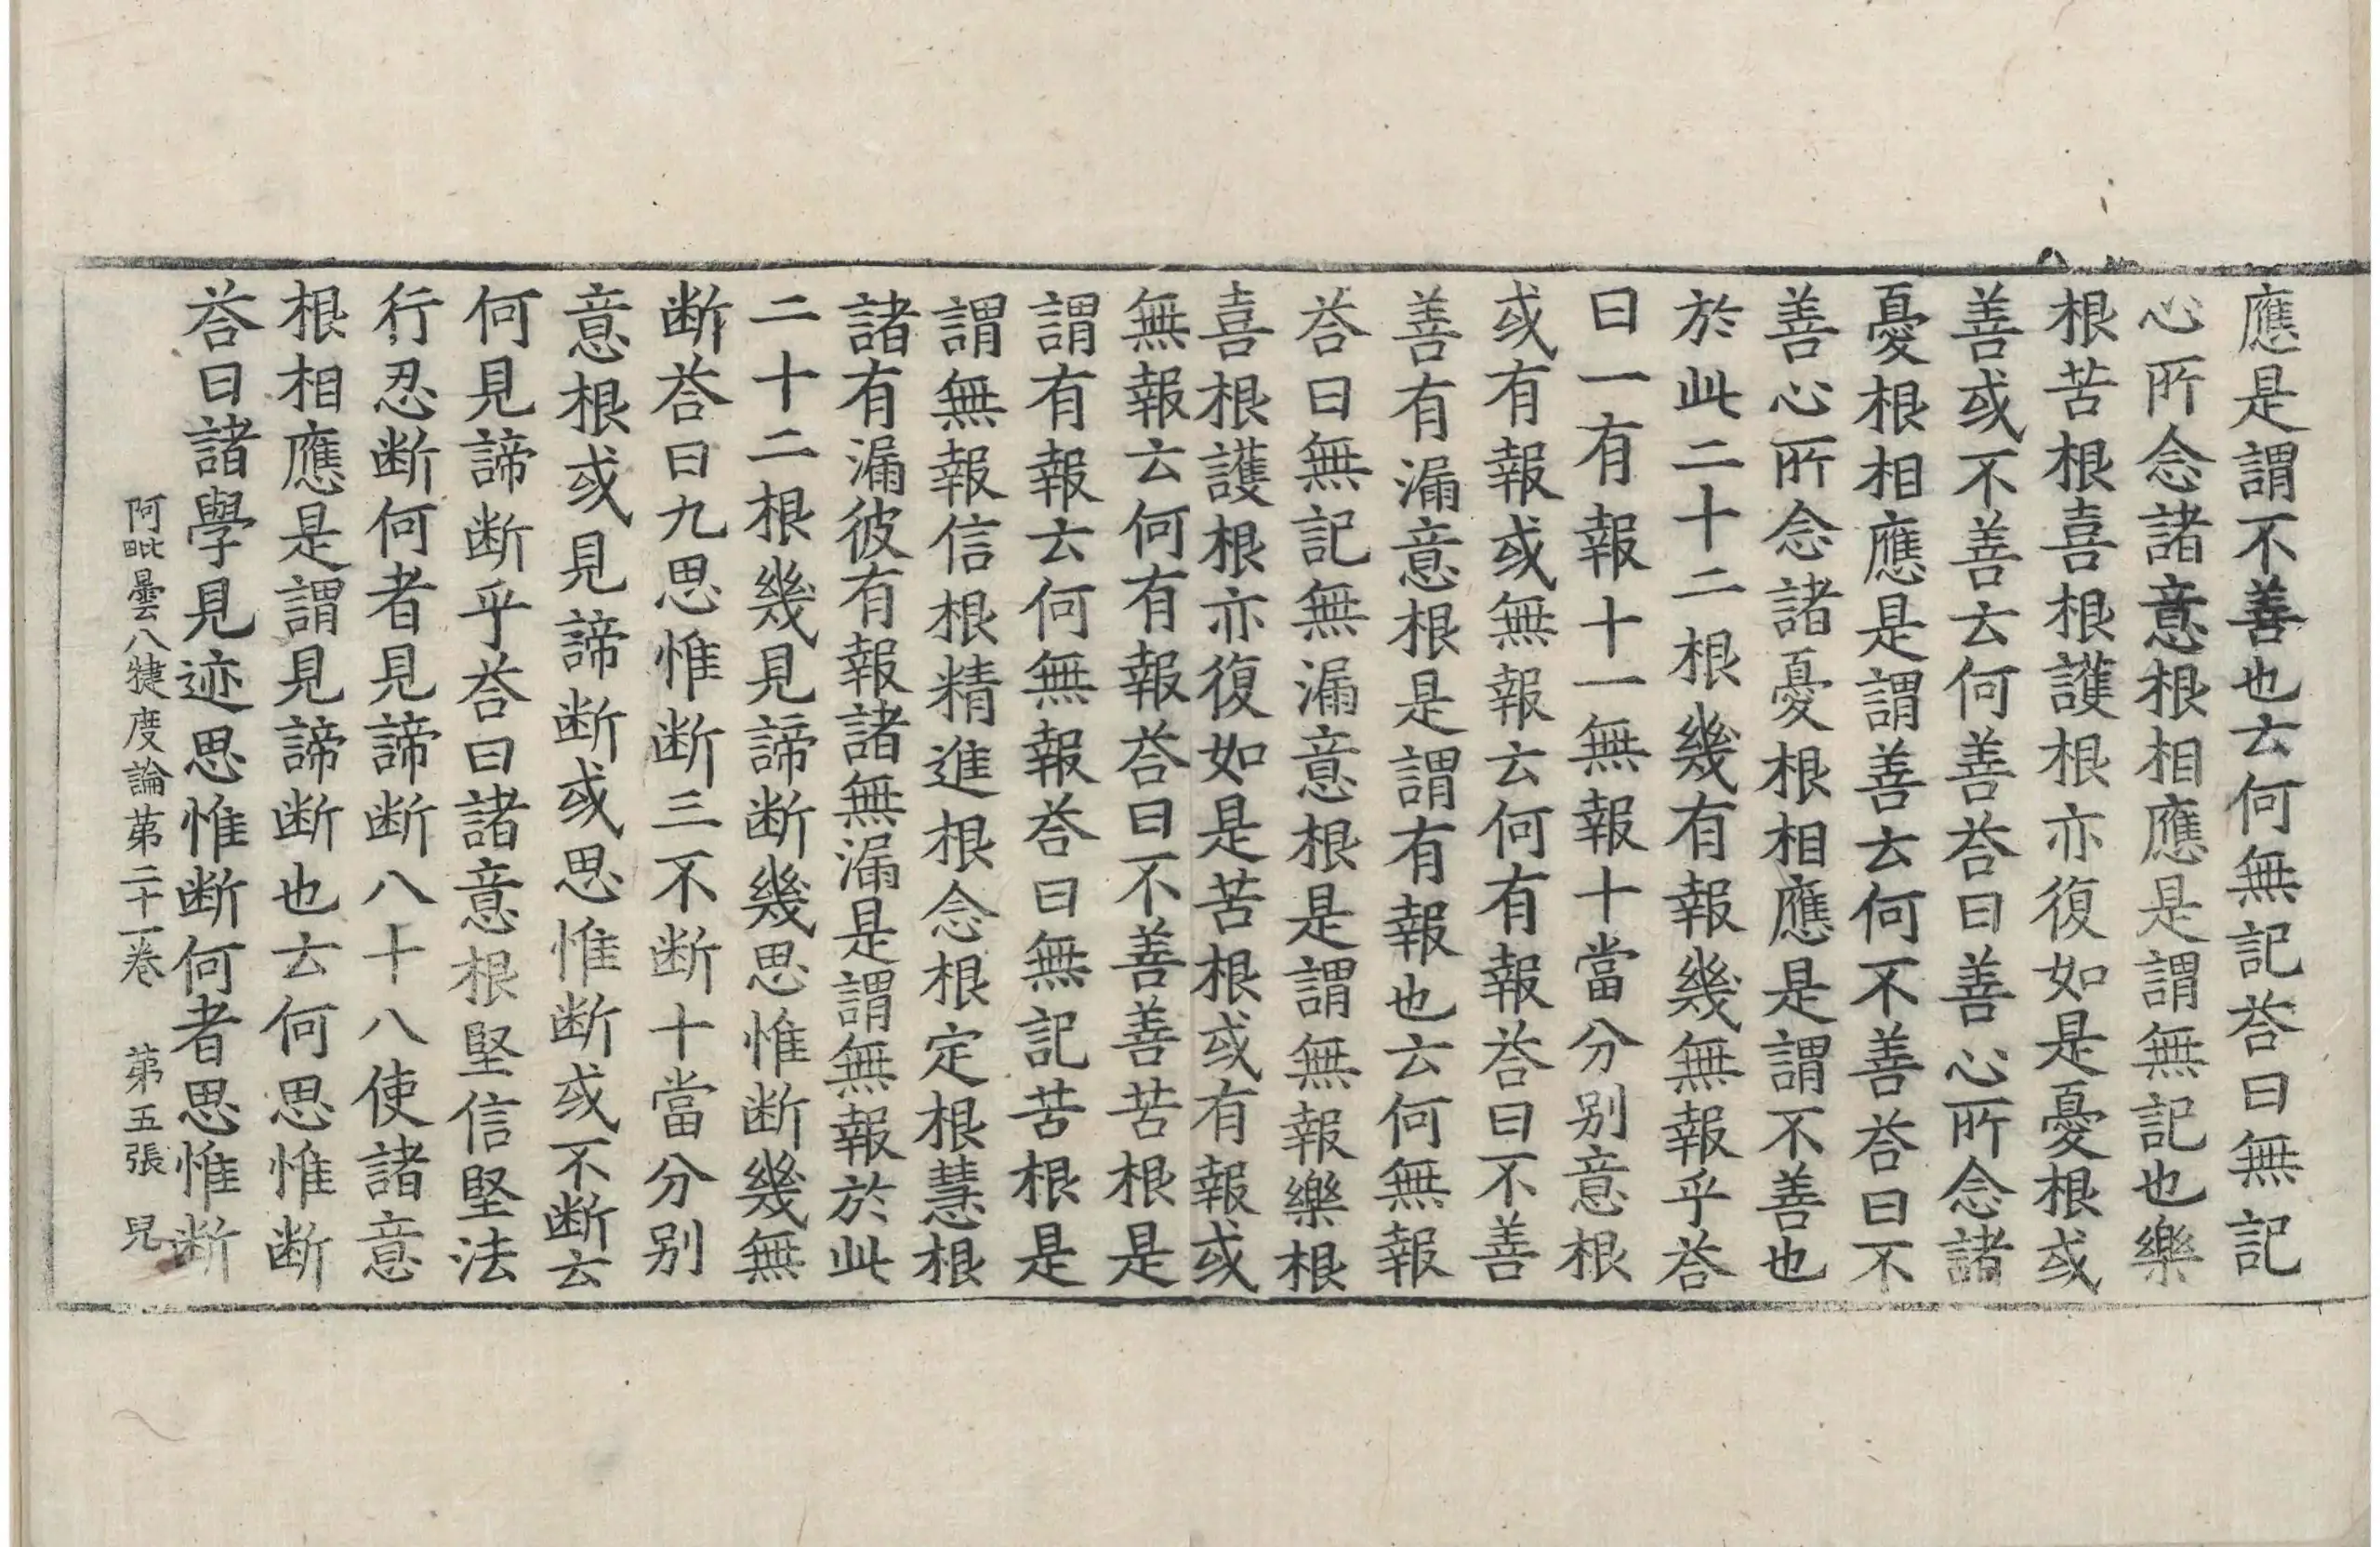 應是謂不善也云何無記荅曰無記
心所念諸意根相應是謂無記也樂
根苦根喜根護根亦復如是憂根或
善或不善云何善荅曰善心所念諸
憂根相應是謂善云何不善荅曰不
善心所念諸憂根相應是謂不善也
於此二十二根幾有報幾無報乎荅
曰一有報十一無報十當分別意根
或有報或無報云何有報荅曰不善
善有漏意根是謂有報也云何無報
荅曰無記無漏意根是謂無報樂根
喜根護根亦復如是苦根或有報或
無報云何有報荅曰不善善苦根是
謂有報云何無報荅曰無記苦根是
謂無報信根精進根念根定根慧根
諸有漏彼有報諸無漏是謂無報於此
二十二根幾見諦断幾思惟断幾無
断荅曰九思惟断三不断十當分別
意根或見諦断或思惟断或不断云
何見諦断乎荅曰諸意根堅信堅法
行忍断何者見諦断八十八使諸意
根相應是謂見諦断也云何思惟断
荅曰諸學見迹思惟断何者思惟断
阿毗曇八犍度論苐二十一卷 苐五張 兒